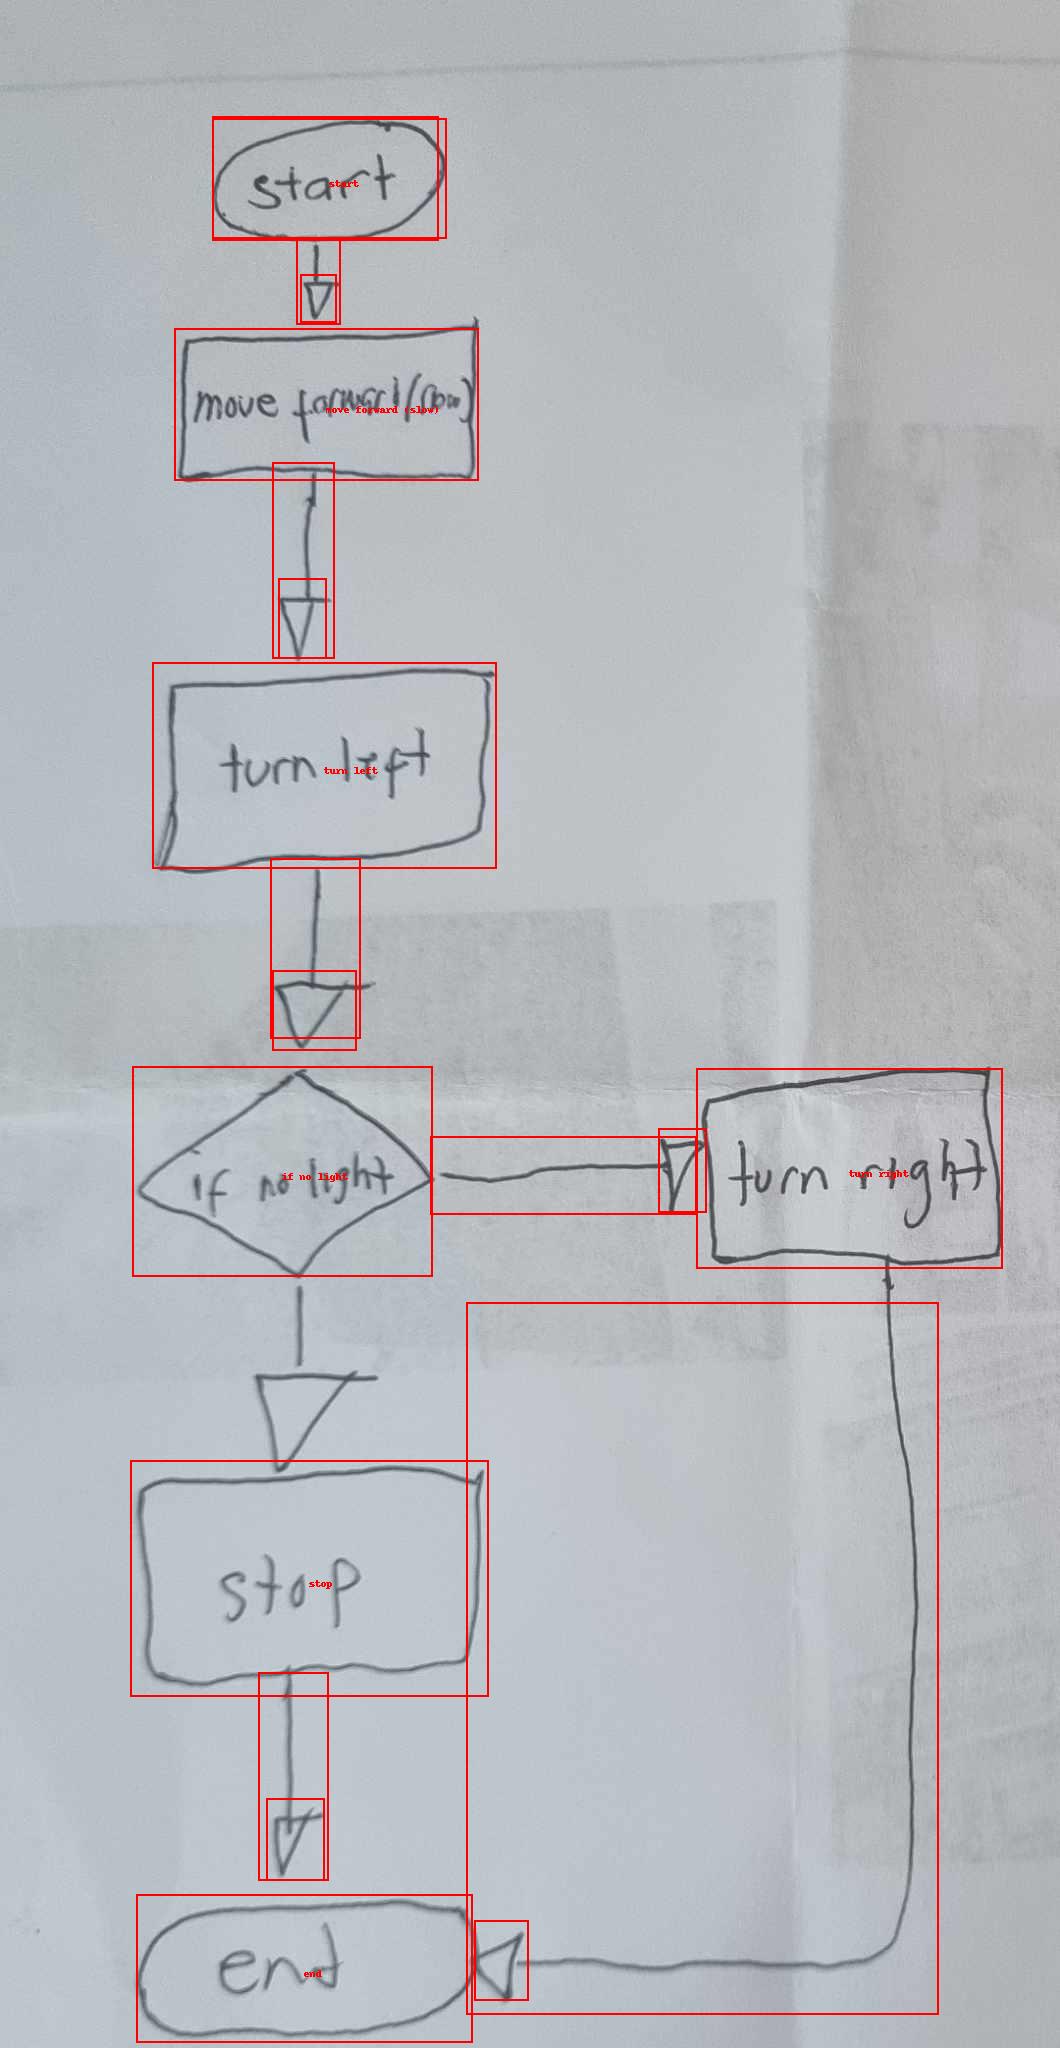 start
start
move forward (slow)
move forward (slow)
turn left
turn left
if no light
if no light
turn right
turn right
stop
stop
end
end